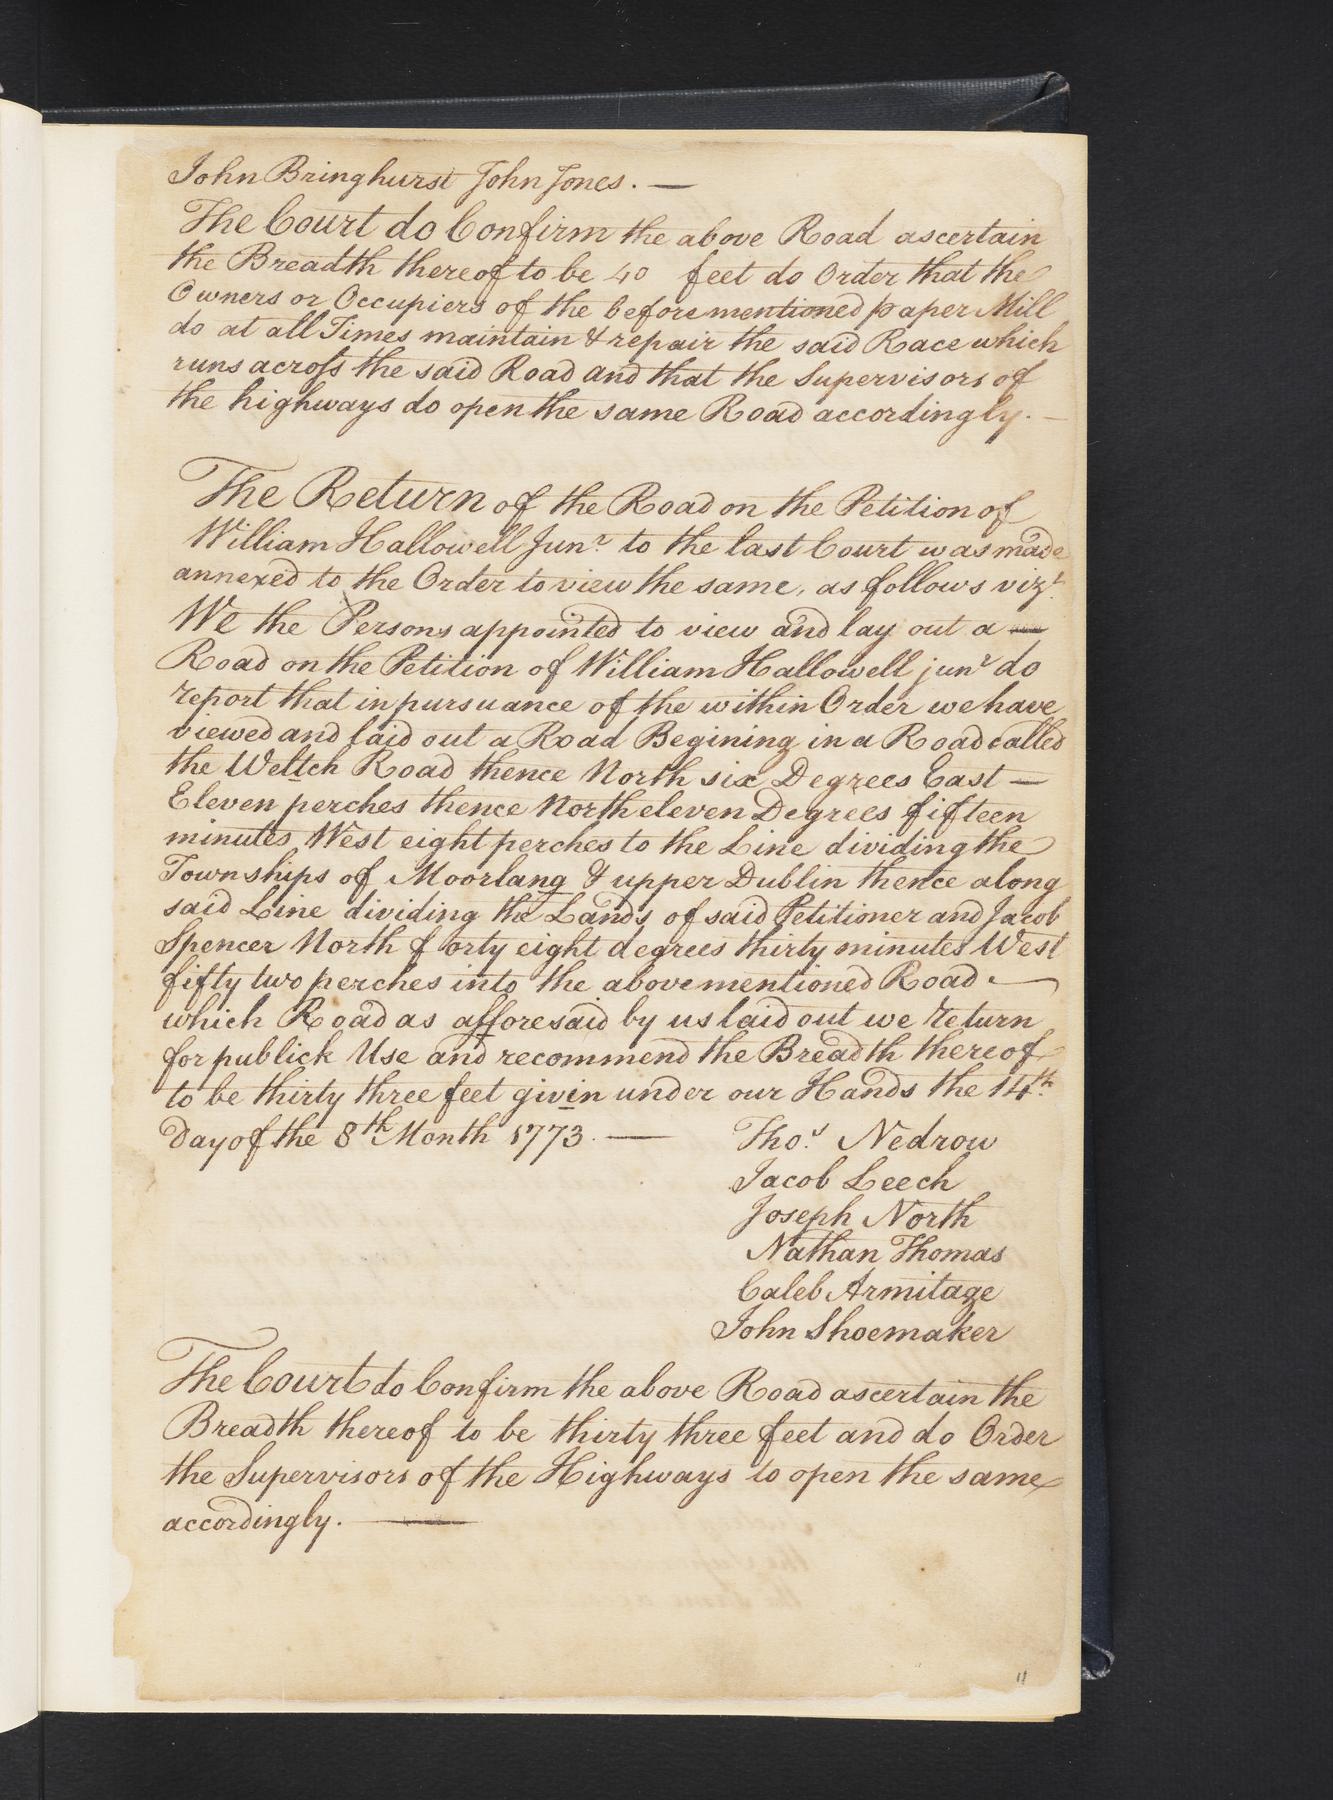 John Bringhurst John Jones. —
The Court do Confirm the above Road ascertain
the Breadth thereof to be 40 feet do Order that the
Owners or Occupiers of the beforementioned paper Mill
do at all Times maintain & repair the said Race which
runs across the said Road and that the Supervisors of
the highways do open the same Road accordingly. —
The Return of the Road on the Petition of
William Hallowell Junr. to the last Court was made
annexed to the Order to view the same, as follows vizt.
We the Persons appointed to view and lay out a
Road on the Petition of William Hallowell junr do
report that in pursuance of the within Order we have
viewed and laid out a Road Begining in a Road called
the Weltch Road thence North six Degrees East —
Eleven perches thence North eleven Degrees fifteen
minutes West eight perches to the Line dividing the
Townships of Moorlang & upper Dublin thence along
said Line dividing the Lands of said Petitioner and Jacob
Spencer North forty eight degrees thirty minutes West
fifty two perches into the abovementioned Road. —
which Road as afforesaid by us laid out we return
for publick Use and recommend the Breadth thereof
to be thirty three feet givin under our Hands the 14th.
Day of the 8th Month 1773. —
Thos. Nedrow
Jacob Leech
Joseph North
Nathan Thomas
Caleb Armitage
John Shoemaker
The Court do Confirm the above Road ascertain the
Breadth thereof to be thirty three feet and do Order
the Supervisors of the Highways to open the same
accordingly. —
11